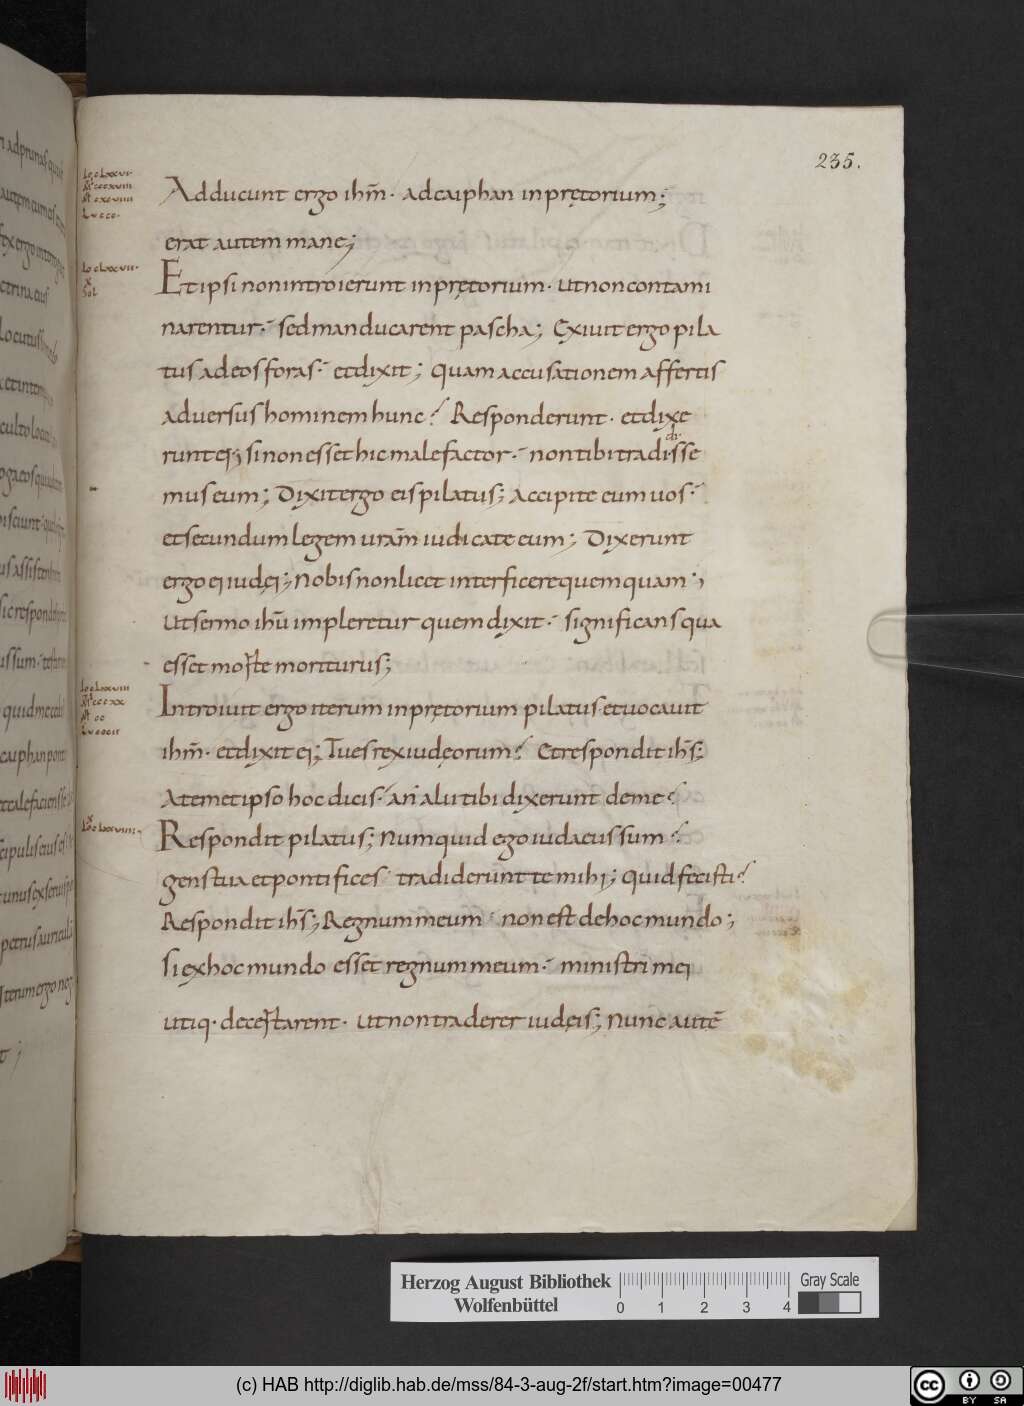 235.
Adducunt ergo ihm̄· adcaiphan in prętorium;
erat autem mane;
Et ipsi non introierunt in prętorium· ut non contami
narentur· sed manducarent pascha; Exiuit ergo pila
tus ad eos foras· et dixit; quam accusationem affertis
aduersus hominem hunc? Responderunt· et dixe
runt ei; si non esset hic malefactor· non tibi tradi·sse
mus eum; Dixit ergo eis pilatus; Accipite eum uos·
et secundum legem uram̄ iudicate eum; Dixerunt
ergo ei iudęi; nobis non licet interficere quemquam·,
ut sermo ihū impleretur quem dixit· significans qua
esset morte moriturus;
Introiuit ergo iterum in prętorium pilatus et uocauit
ihm̄· et dixit ei; Tu es rex iudęorum? Et respondit ih̄s;
A temet ipso hoc dicis· an alii tibi dixerunt de me?
Respondit pilatus; numquid ego iudaeus sum?
gens tua et pontifices tradiderunt te mihi; quid fecisti?
Respondit ih̄s; Regnum meum non est de hoc mundo;
si ex hoc mundo esset regnum meum· ministri mei
utiq· decertarent· ut non traderer iudęis; nunc autē
Herzog August Bibliothek
Wolfenbüttel
0 1 2 3 4
Gray Scale
(c) HAB http://diglib.hab.de/mss/84-3-aug-2f/start.htm?image=00477
cc BY SA